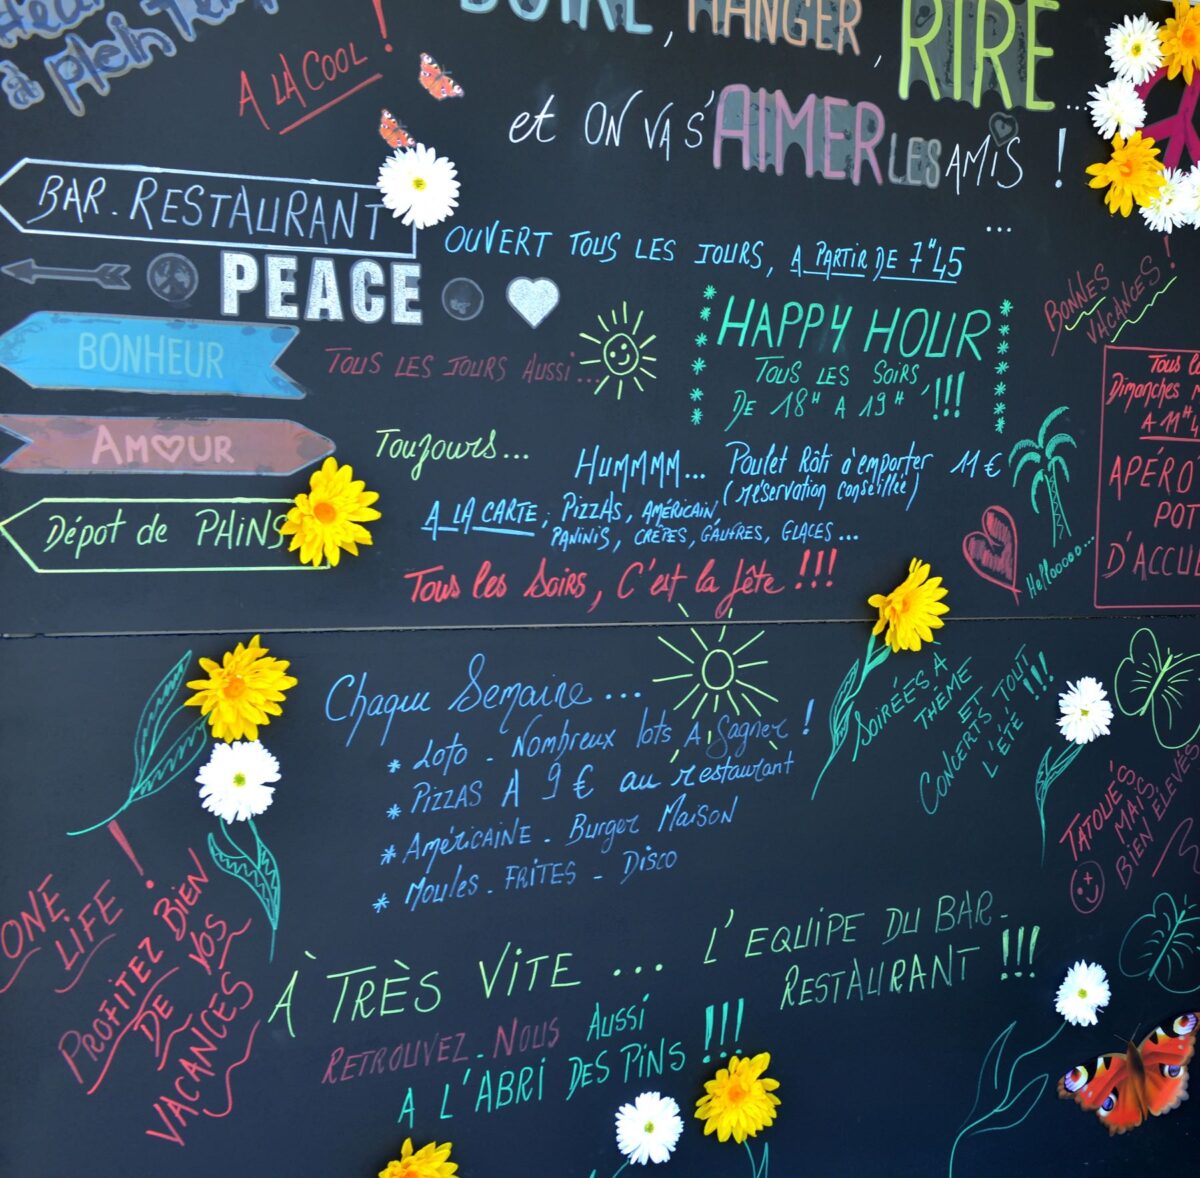 à plein
A LA COOL !
BOIRE, MANGER, RIRE...
et ON VA S'AIMER LES AMIS !
...
BAR - RESTAURANT
OUVERT TOUS LES JOURS, A PARTIR DE 7H45
PEACE
BONHEUR
TOUS LES JOURS AUSSI...
HAPPY HOUR
TOUS LES SOIRS,
DE 18H A 19H !!!
BONNES
VACANCES !
AMOUR
Toujours...
HUMMMM... Poulet Rôti à emporter 11 €
(réservation conseillée)
Dépot de PAINS
A LA CARTE; PIZZAS, AMÉRICAIN,
PANINIS, CRÊPES, GAUFRES, GLACES...
Tous les Soirs, C'est la fête !!!
Hellooooo...
Dimanches
A 11H
APÉRO
POT
D'ACCUE
Chaque Semaine...
* Loto - Nombreux lots A gagner !
* PIZZAS A 9 € au restaurant
* AméricAINE - Burger MAISON
* Moules - FRITES - Disco
SOIRÉES À
THÈME
ET
CONCERTS, TOUT
L'ÉTÉ !!!
TATOUÉS
MAIS
BIEN ÉLEVÉS
ONE
LIFE
PROFITEZ BIEN
DE VOS
VACANCES !
À TRÈS VITE ... L'EQUIPE DU BAR-
RESTAURANT !!!
RETROUVEZ-NOUS AUSSI
A L'ABRI DES PINS !!!